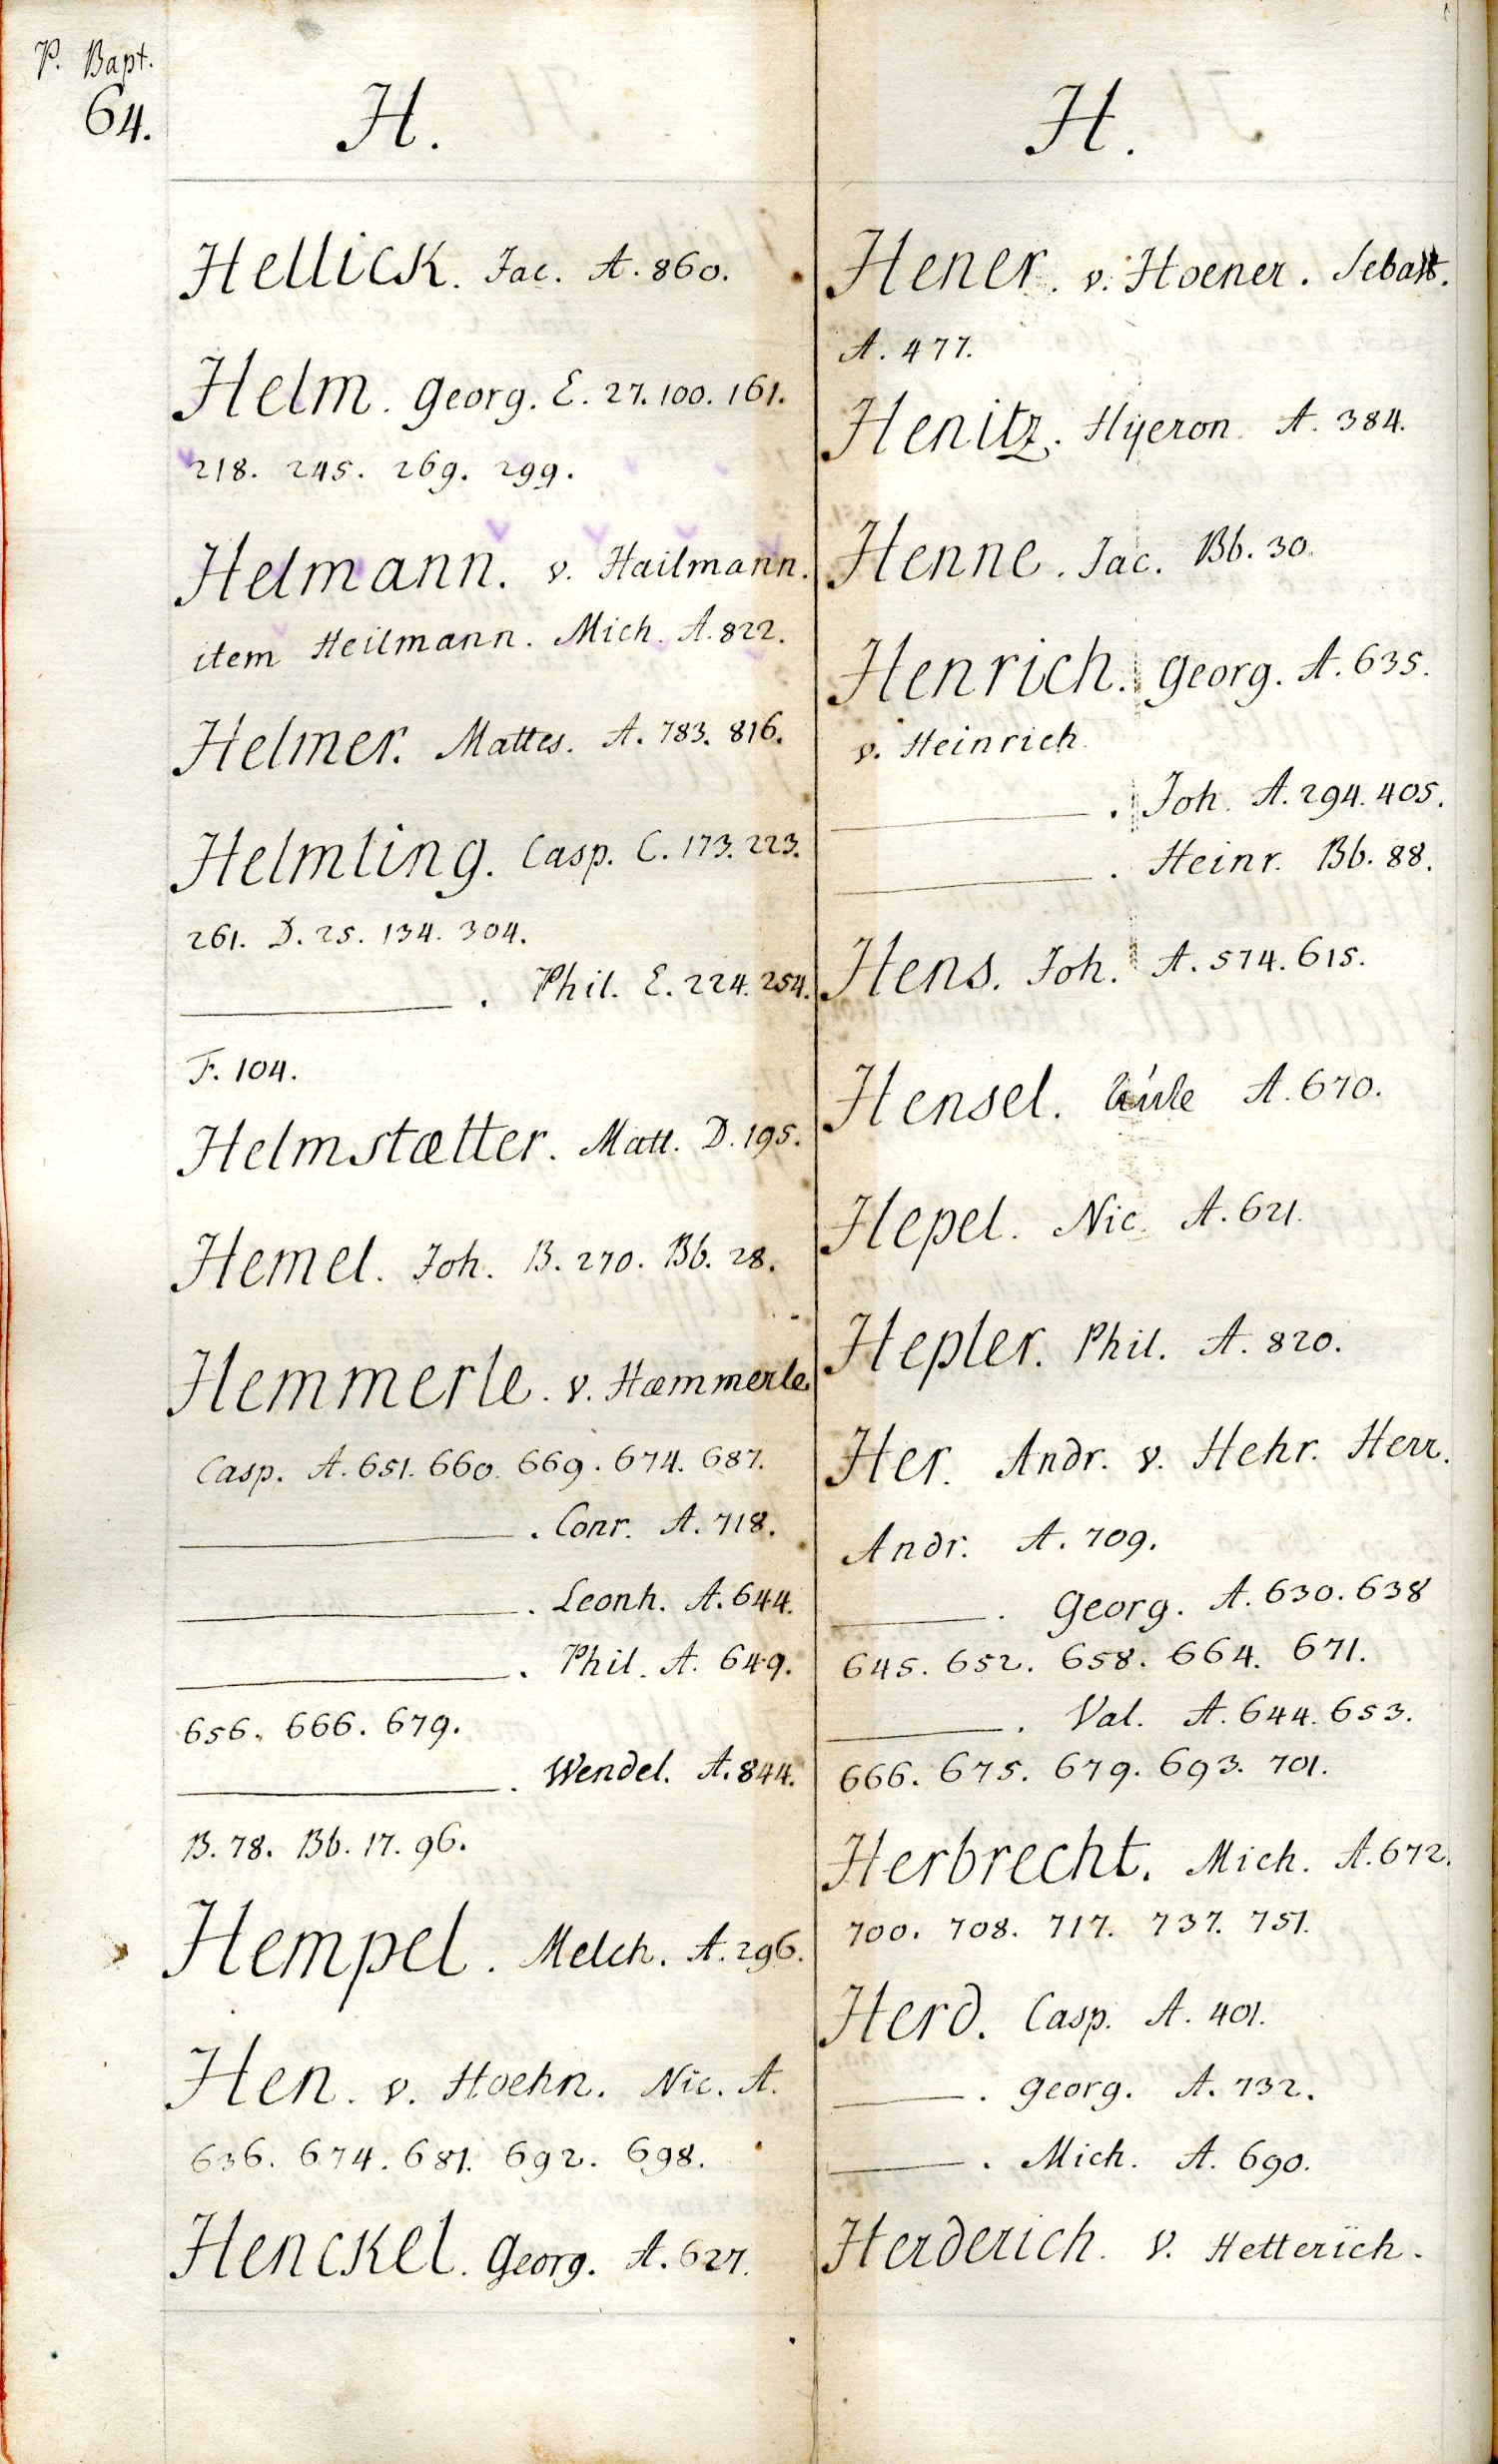 P. Bapt.
64.
H.
Hellick. Jac. A. 860.
Helm. Georg. E. 27. 100. 161.
218. 245. 269. 299.
Helmann. v. Hailmann.
item Heilmann. Mich. A. 822.
Helmer. Mattes. A. 783. 816.
Helmling. Casp. C. 173. 223.
261. D. 25. 134. 304.
———. Phil. E. 224. 254.
F. 104.
Helmstætter. Matt. D. 195.
Hemel. Joh. B. 270. Bb. 28.
Hemmerle. v. Hæmmerle
Casp. A. 651. 660. 669. 674. 687.
———. Conr. A. 718.
———. Leonh. A. 644.
———. Phil. A. 649.
656. 666. 679.
———. Wendel. A. 844.
B. 78. Bb. 17. 96.
Hempel. Melch. A. 296.
Hen. v. Hoehn. Nic. A.
636. 674. 681. 692. 698.
Henckel. Georg. A. 627.
H.
Hener. v. Hoener. Sebast.
A. 477.
Henitz. Hÿeron. A. 384.
Henne. Jac. Bb. 30.
Henrich. Georg. A. 635.
v. Heinrich.
———. Joh. A. 294. 405.
———. Heinr. Bb. 88.
Hens. Joh. A. 574. 615.
Hensel. A. 670.
Hepel. Nic. A. 621.
Hepler. Phil. A. 820.
Her. Andr. v. Hehr. Herr.
Andr. A. 709.
———. Georg. A. 630. 638
645. 652. 658. 664. 671.
———. Val. A. 644. 653.
666. 675. 679. 693. 701.
Herbrecht. Mich. A. 672.
700. 708. 717. 737. 751.
Herd. Casp. A. 401.
———. Georg. A. 732.
———. Mich. A. 690.
Herderich. v. Hetterich.